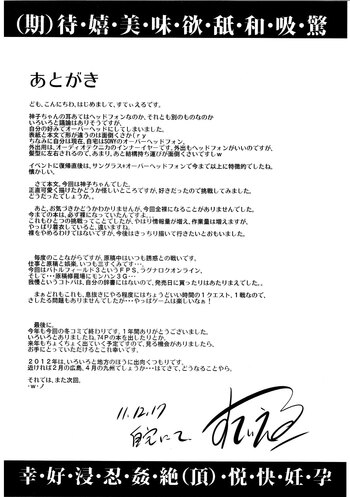 (期)待・嬉・美・味・欲・舐・和・吸・驚
あとがき
ども、こんにちわ、はじめまして、すてぃえるです。
神子ちゃんの耳あてはヘッドフォンなのか、それとも別のものなのか
いろいろと議論はありそうですが、
自分の好みでオーバーヘッドにしてしまいました。
表紙と本文で形が違うのは面倒くさか(ry
ちなみに自分は現在、自宅はSONYのオーバーヘッドフォン、
外出用は、オーディオテクニカのインナーイヤーです。外出もヘッドフォンがいいのですが、
髪型に左右されるので、あまり。あと結構持ち運びが面倒くさいですしw
イベントに復帰直後は、サングラス+オーバーヘッドフォンで今まで以上に特徴的でしたね。
懐かしい。
さて本文、今回は神子ちゃんでした。
正直可愛く描けたかどうか怪しいところですが、好きだったので挑戦してみました。
どうだったでしょうか。
あと、お気づきかどうかわかりませんが、今回全裸になることがありませんでした。
今までの本は、必ず裸になっていたんですよ。
これもひとつの挑戦ってことでしたが、やはり情報量が増え、作業量は増えますが、
やっぱり着衣していると、違いますね。
裸をやめるわけではないですが、今後はきっちり描いて行きたいとおもいました。
毎度のことながらですが、原稿中はいつも誘惑との戦いです。
仕事と原稿と娯楽、いつも三すくみです…。
今回はバトルフィールド3というFPS、ラグナロクオンライン、
そして・・・原稿修羅場にモンハン3G…
我慢というコトバは、自分の辞書にはないので、発売日に買ったりはあたりまえでした…。
まぁどれもこれも、息抜きにやる程度にはちょうどいい時間の1クエスト、1戦なので、
さしたる問題もありませんでしたが・・・やっぱゲームは楽しいなぁ!
最後に。
今年も今回の冬コミで終わりです。1年間ありがとうございました。
いろいろとありましたね。74Pの本を出したりとか。
来年もちょくちょく出ていく予定ですので、見る機会がありましたら、
お手にとっていただけるとこれ幸いです。
2012年は、いろいろと地方のほうに出向くつもりです。
近ければ2月の広島、4月の九州でしょうか…はてさて、どうなることやら。
それでは、また次回。
・w・ノ
11.12.17
自宅にて
すてぃえる
幸・好・浸・忍・姦・絶(頂)・悦・快・妊・孕